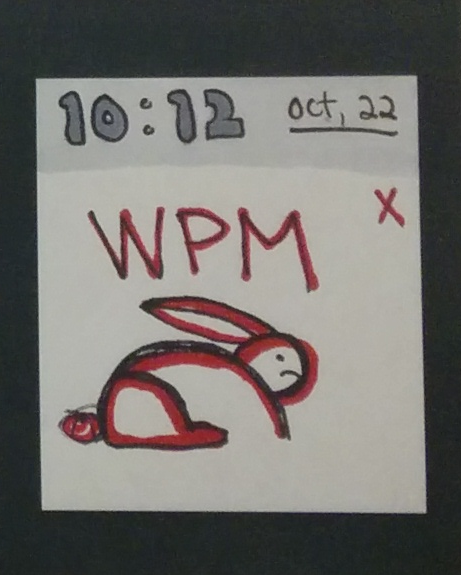 10:12 oct, 22
X
WPM